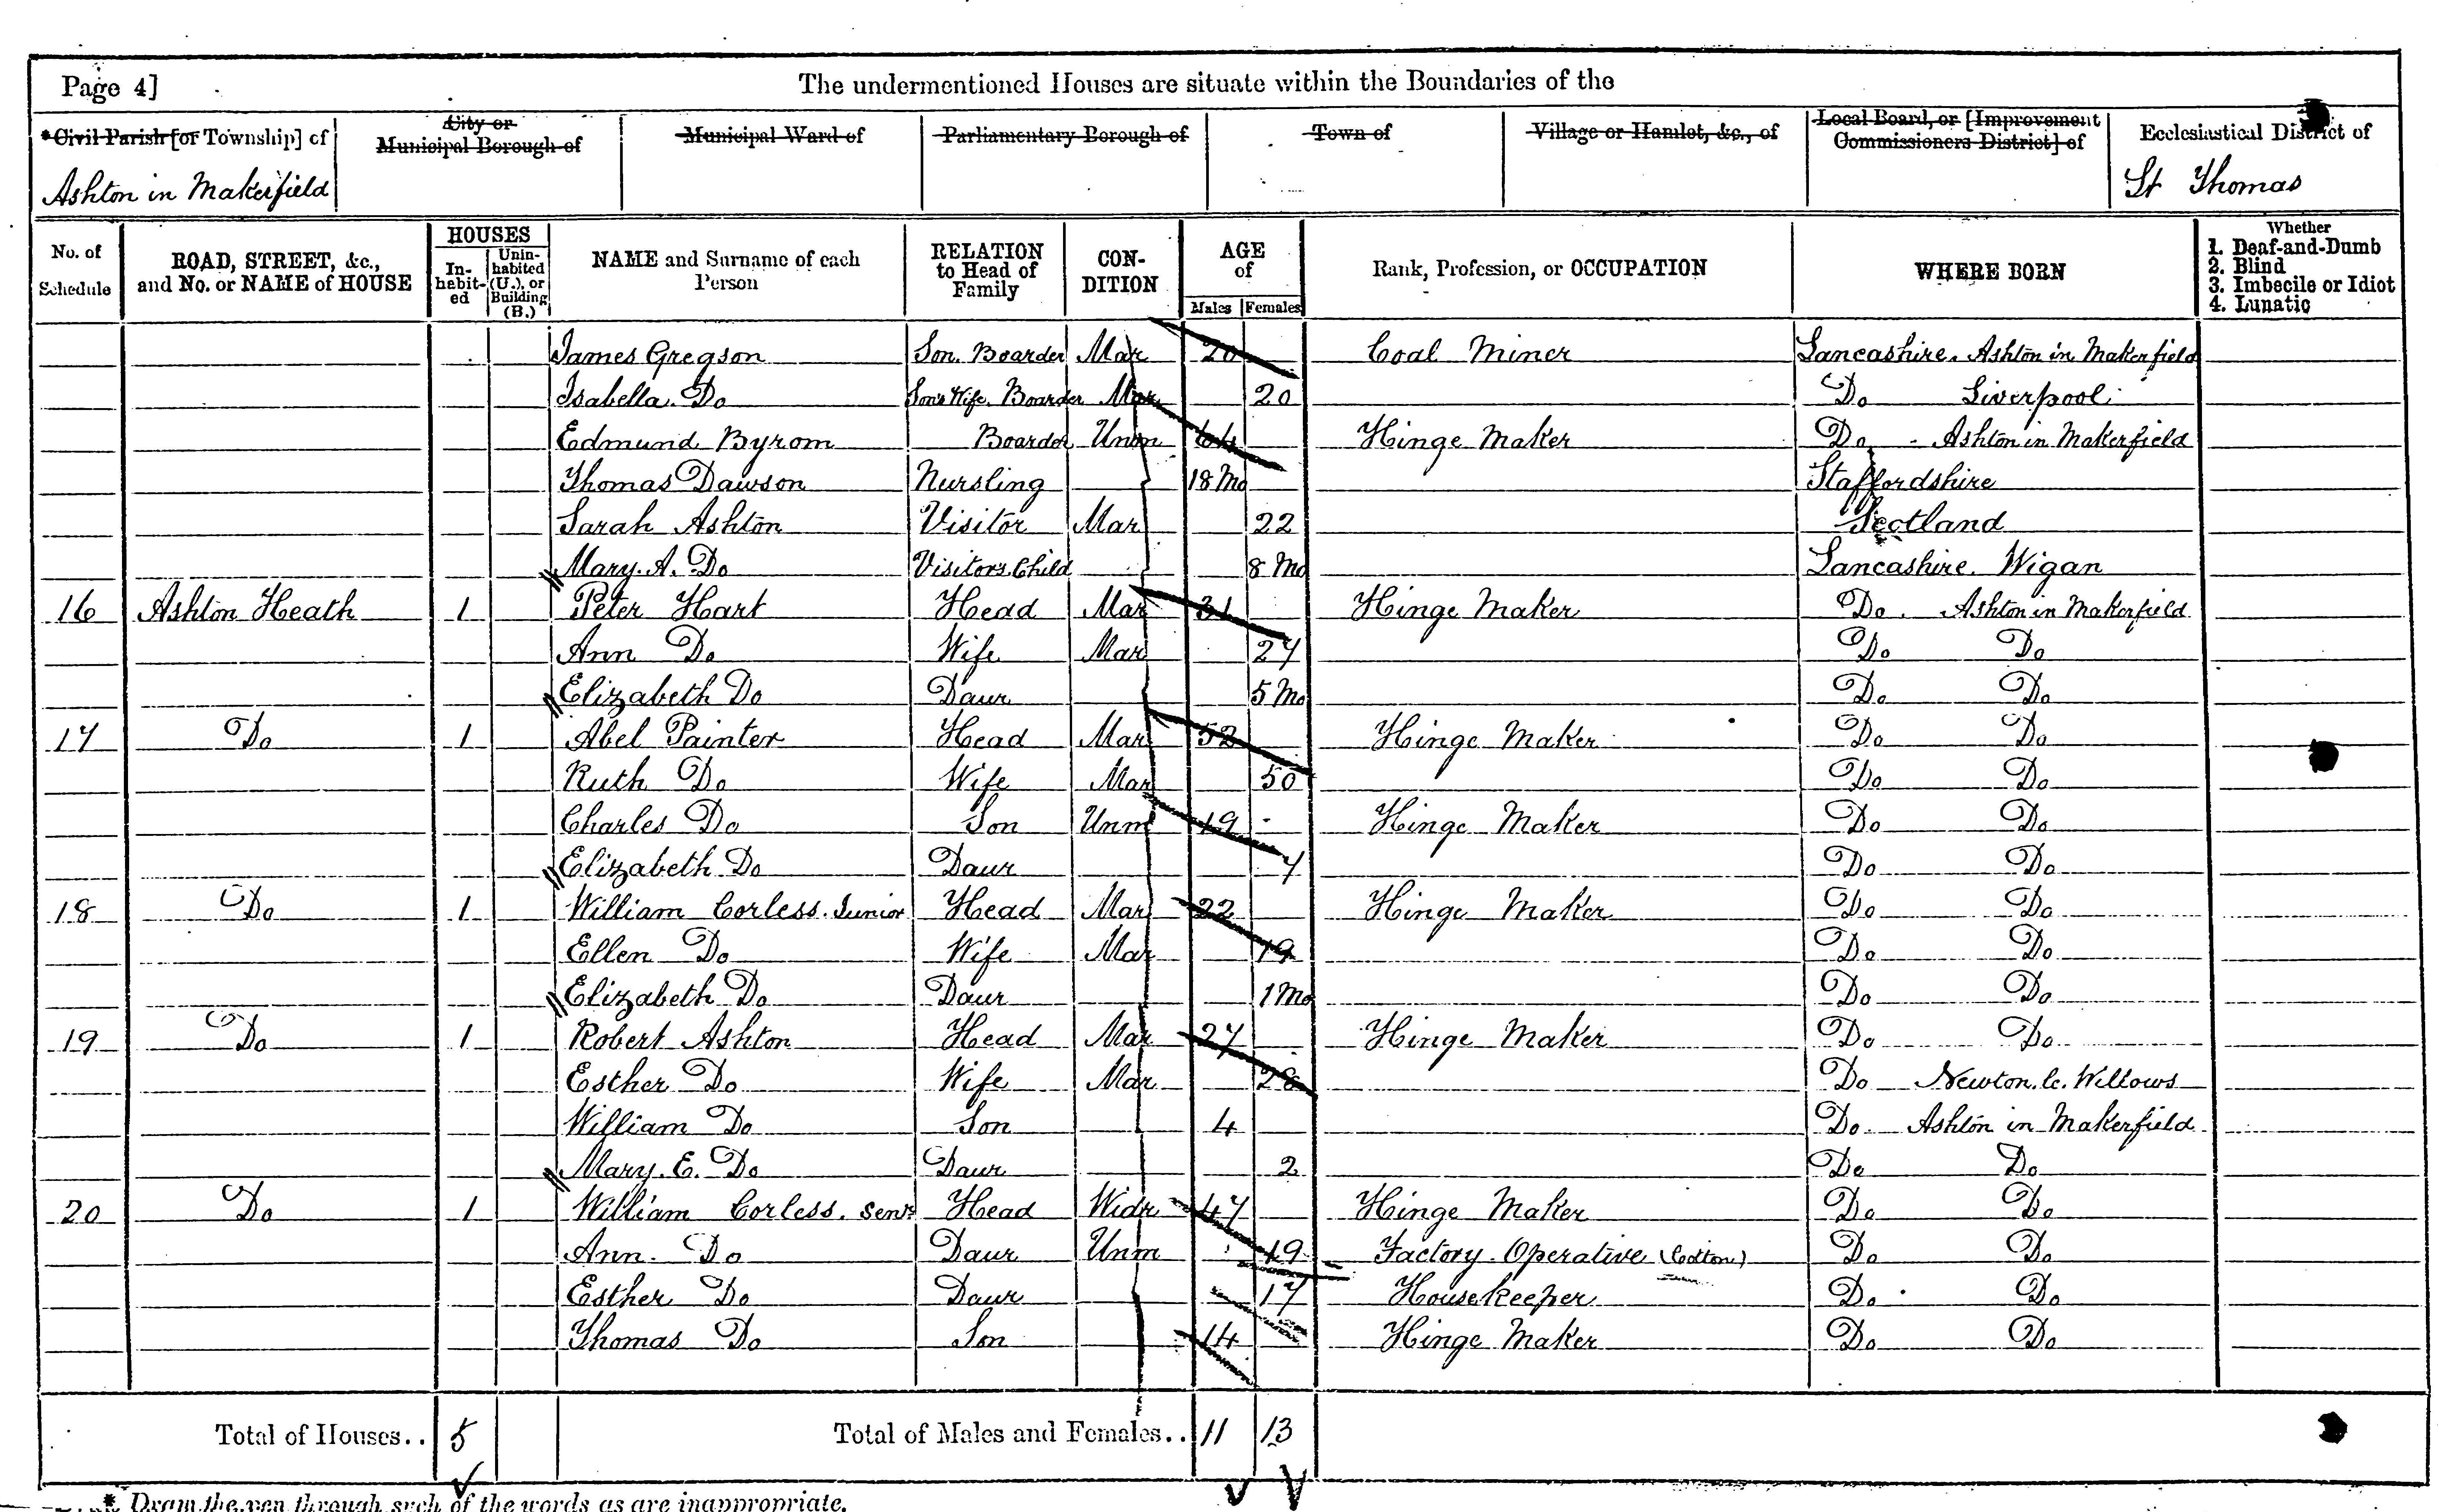 Page 4] The undermentioned Houses are situate within the Boundaries of the
*Civil Parish [or Township] of City or Municipal Borough of Municipal Ward of Parliamentary Borough of Town of Village or Hamlet, &c., of Local Board, or [Improvement Commissioners District] of Ecclesiastical District of
Ashton in Makerfield St Thomas
No. of Schedule ROAD, STREET, &c., and No. or NAME of HOUSE HOUSES In-habit-ed Unin-habited (U.), or Building (B.) NAME and Surname of each Person RELATION to Head of Family CON-DITION AGE of Males Females Rank, Profession, or OCCUPATION WHERE BORN Whether 1. Deaf-and-Dumb 2. Blind 3. Imbecile or Idiot 4. Lunatic
James Gregson Son. Boarder Mar 20 Coal Miner Lancashire. Ashton in Makerfield
Isabella Do Son's Wife. Boarder Mar 20 Do Liverpool
Edmund Byrom Boarder Unm 64 Hinge Maker Do Ashton in Makerfield
Thomas Dawson Nursling 18 Mo Staffordshire
Sarah Ashton Visitor Mar 22 Scotland
Mary. A. Do Visitors Child 8 Mo Lancashire. Wigan
16 Ashton Heath 1 Peter Hart Head Mar 31 Hinge Maker Do. Ashton in Makerfield
Ann Do Wife Mar 27 Do Do
Elizabeth Do Daur 5 Mo Do Do
17 Do 1 Abel Painter Head Mar 52 Hinge Maker Do Do
Ruth Do Wife Mar 50 Do Do
Charles Do Son Unm 19 Hinge Maker Do Do
Elizabeth Do Daur 7 Do Do
18 Do 1 William Corless. Junior Head Mar 22 Hinge Maker Do Do
Ellen Do Wife Mar 19 Do Do
Elizabeth Do Daur 1 Mo Do Do
19 Do 1 Robert Ashton Head Mar 27 Hinge Maker Do Do
Esther Do Wife Mar 28 Do Newton. le. Willows
William Do Son 4 Do Ashton in Makerfield
Mary. E. Do Daur 2 Do Do
20 Do 1 William Corless. Senr Head Widr 47 Hinge Maker Do Do
Ann. Do Daur Unm 19 Factory Operative (Cotton) Do Do
Esther Do Daur 17 Housekeeper Do Do
Thomas Do Son 14 Hinge Maker Do Do
Total of Houses.. 5 Total of Males and Females.. 11 13
* Draw the pen through such of the words as are inappropriate.